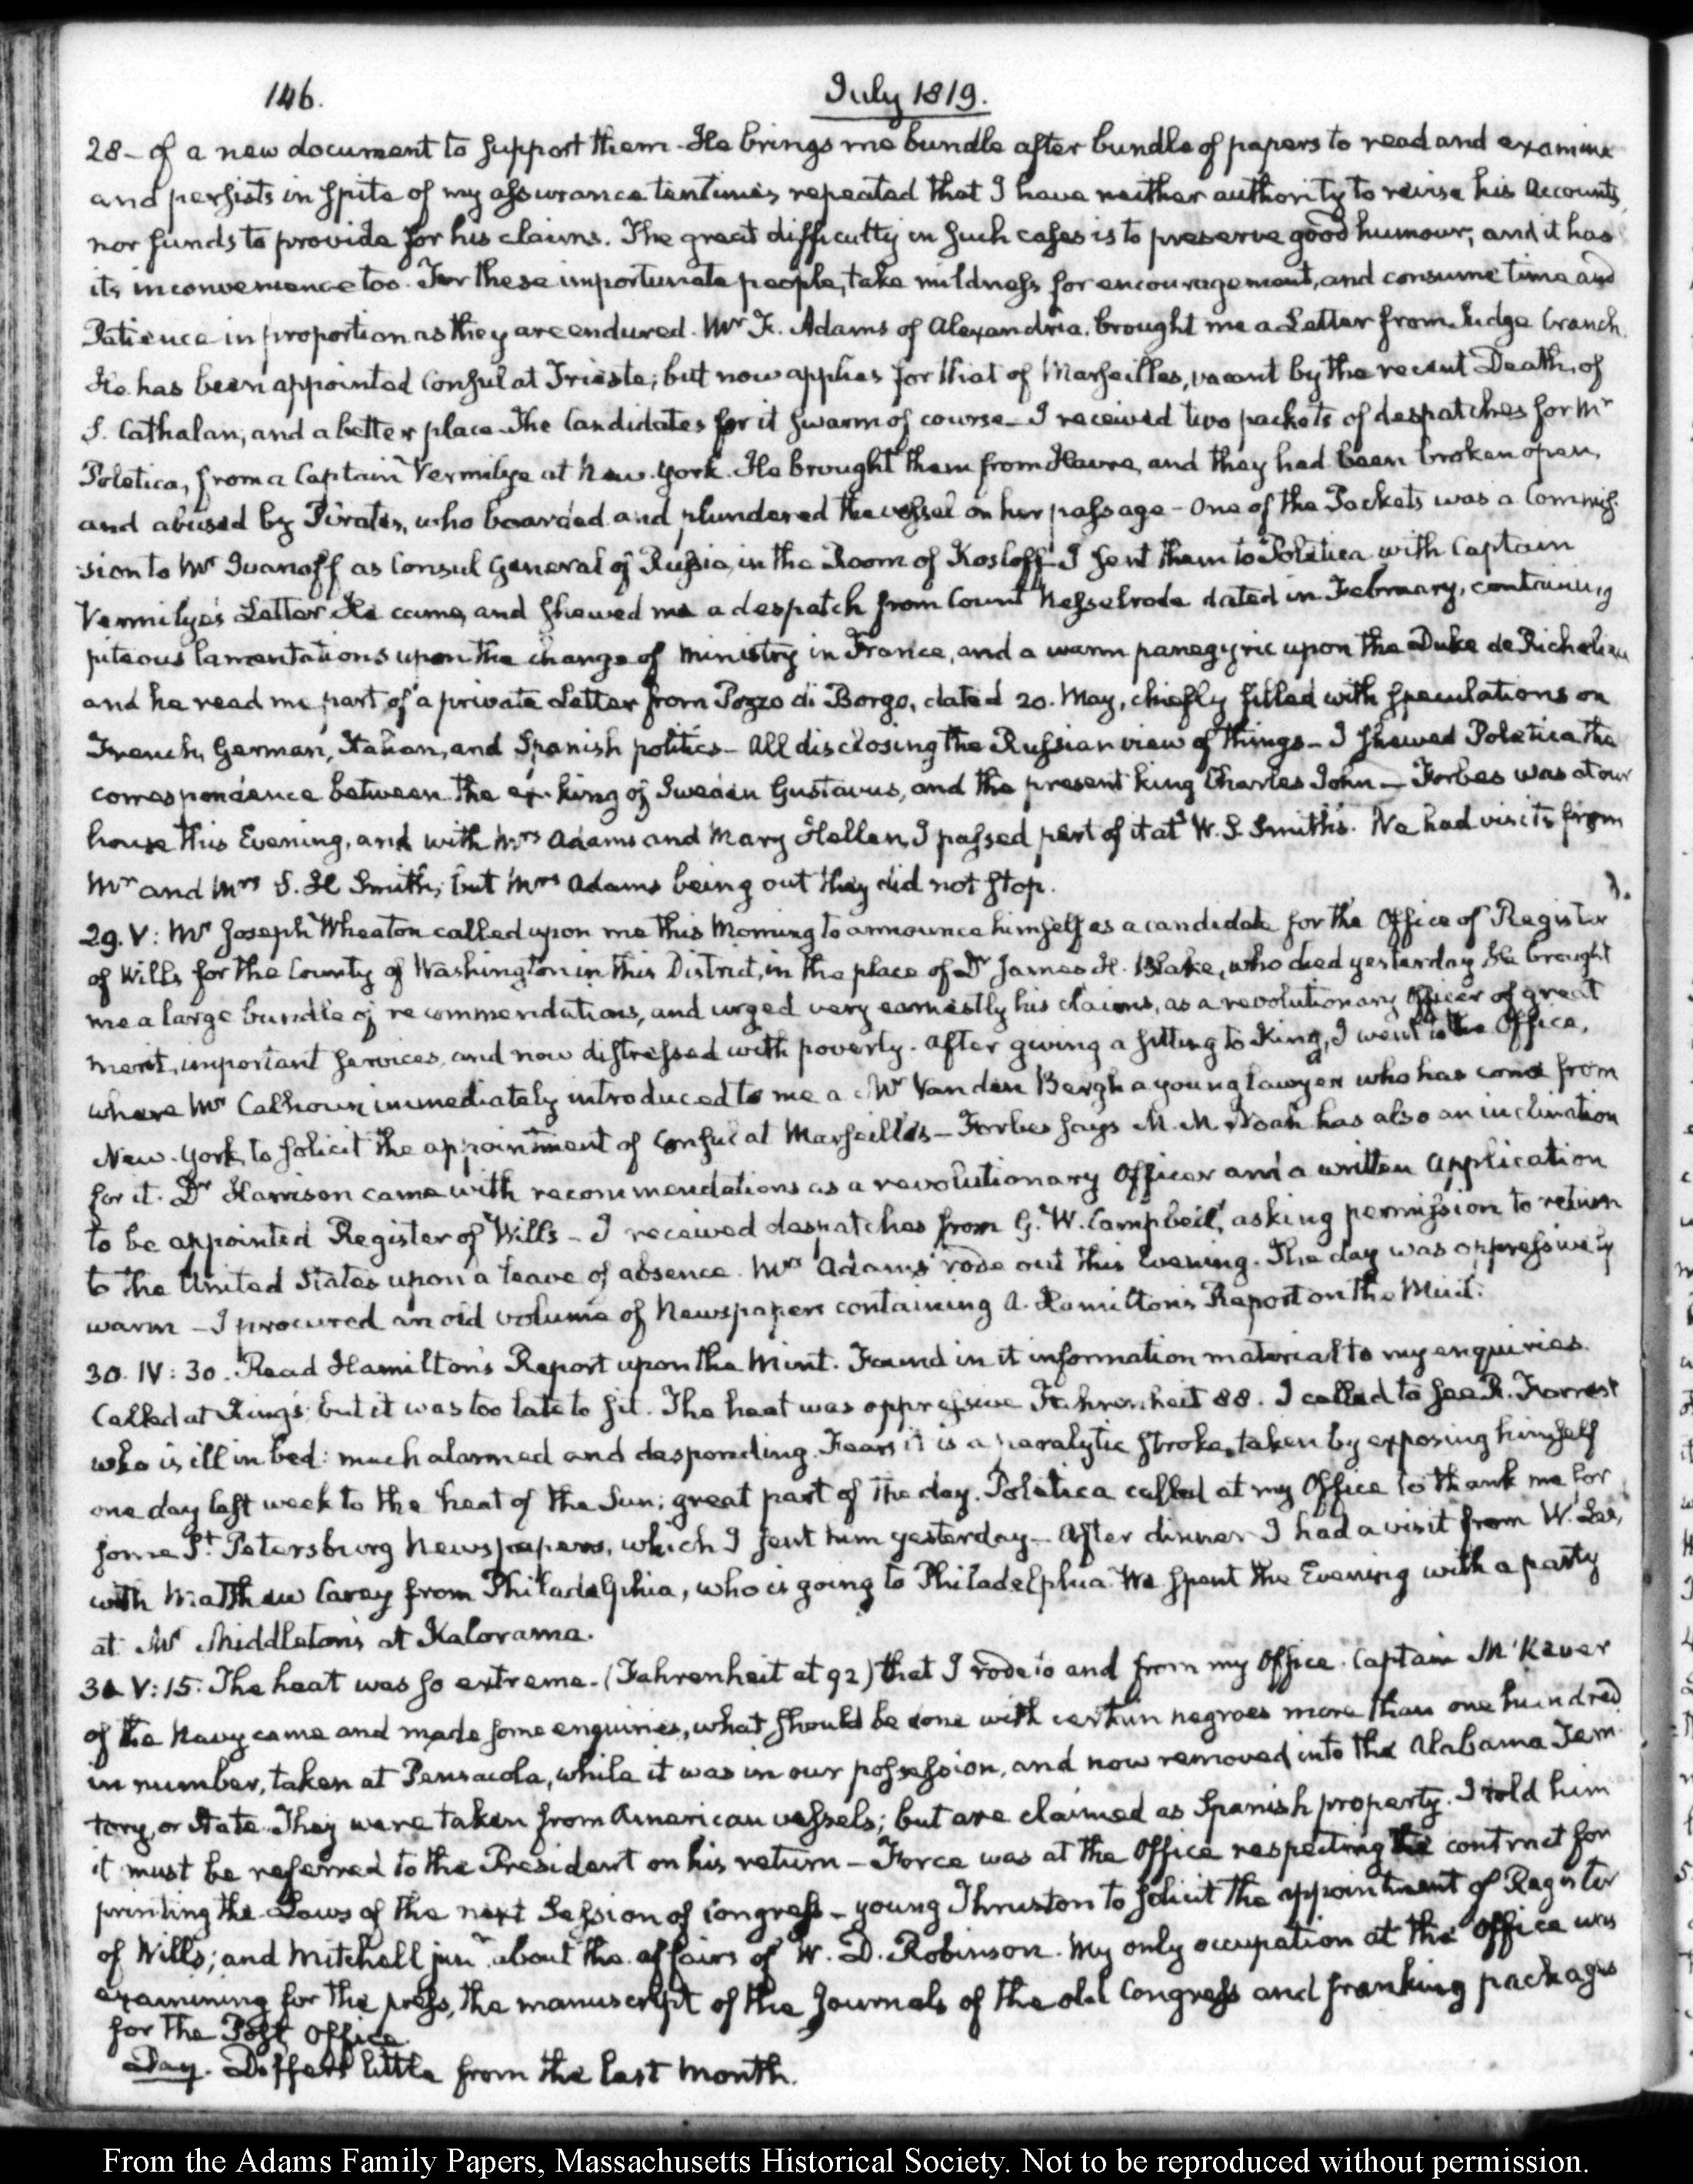 146.
July 1819.
28 – of a new document to support them. He brings me bundle after bundle of papers to read and examine
and persists in spite of my assurance ten times repeated that I have neither authority to revise his Accounts,
nor funds to provide for his claims. The great difficulty in such cases is to preserve good humour, and it has
its inconvenience too. For these importunate people, take mildness for encouragement, and consume time and
Patience in proportion as they are endured. Mr F. Adams of Alexandria, brought me a Letter from Judge Cranch.
He has been appointed Consul at Trieste; but now applies for that of Marseilles, vacant by the recent Death, of
S. Cathalan, and a better place. The Candidates for it swarm of course – I received two packets of despatches for Mr
Poletica, from a Captain Vermilye at New-York. He brought them from Havre, and they had been broken open,
and abused by Pirates, who boarded and plundered the vessel on her passage – One of the Packets was a Commis-
sion to Mr Ivanoff as Consul General of Russia, in the Room of Kosloff – I sent them to Poletica with Captain
Vermilye's Letter. He came, and shewed me a despatch from Count Nesselrode dated in February, containing
piteous lamentations upon the change of Ministry in France, and a warm panegyric upon the Duke de Richelieu
and he read me part of a private Letter from Pozzo di Borgo, dated 20. May, chiefly filled with speculations on
French, German, Italian, and Spanish politics – All disclosing the Russian view of things – I shewed Poletica the
correspondence between the ex-king of Sweden Gustavus, and the present king Charles John – Forbes was at our
house this Evening, and with Mrs Adams and Mary Hellen, I passed part of it at W. S. Smith's. We had visits from
Mr and Mrs S. H. Smith; but Mrs Adams being out they did not stop.
29. V: Mr Joseph Wheaton called upon me this Morning to announce himself as a candidate for the Office of Register
of Wills for the County of Washington in this District, in the place of Dr James H. Blake, who died yesterday. He brought
me a large bundle of recommendations, and urged very earnestly his claims, as a revolutionary Officer of great
merit, important services, and now distressed with poverty. After giving a sitting to King, I went to the Office,
where Mr Calhoun immediately introduced to me a Mr Vanden Bergh a young lawyer who has come from
New-York, to solicit the appointment of Consul at Marseilles – Forbes says M. M. Noah has also an inclination
for it. Dr Harrison came with recommendations as a revolutionary Officer and a written Application
to be appointed Register of Wills – I received despatches from G. W. Campbell, asking permission to return
to the United States upon a leave of absence. Mrs Adams rode out this Evening. The day was oppressively
warm – I procured an old volume of Newspapers containing A. Hamilton's Report on the Mint.
30. IV: 30. Read Hamilton's Report upon the Mint. Found in it information material to my enquiries.
Called at King's: but it was too late to sit. The heat was oppressive Fahrenheit 88. I called to see R. Forrest
who is ill in bed: much alarmed and desponding. Fears it is a paralytic stroke, taken by exposing himself
one day last week to the heat of the Sun; great part of the day. Poletica called at my Office to thank me for
some St Petersburg Newspapers, which I sent him yesterday – After dinner I had a visit from W. Lee,
with Matthew Carey from Philadelphia, who is going to Philadelphia. We spent the Evening with a party
at Mr Middleton's at Kalorama.
31. V: 15. The heat was so extreme – (Fahrenheit at 92) that I rode to and from my Office. Captain M'Keever
of the Navy came and made some enquiries, what should be done with certain negroes more than one hundred
in number, taken at Pensacola, while it was in our possession, and now removed into the Alabama Terri-
tory, or State. They were taken from American vessels; but are claimed as Spanish property. I told him
it must be referred to the President on his return – Force was at the Office respecting the contract for
printing the Laws of the next Session of Congress – young Thruston to solicit the appointment of Register
of Wills; and Mitchell junr about the affairs of W. D. Robinson. My only occupation at the Office was
examining for the press, the manuscript of the Journals of the old Congress and franking packages
for the Post Office.
Day. Differs little from the last Month.
From the Adams Family Papers, Massachusetts Historical Society. Not to be reproduced without permission.